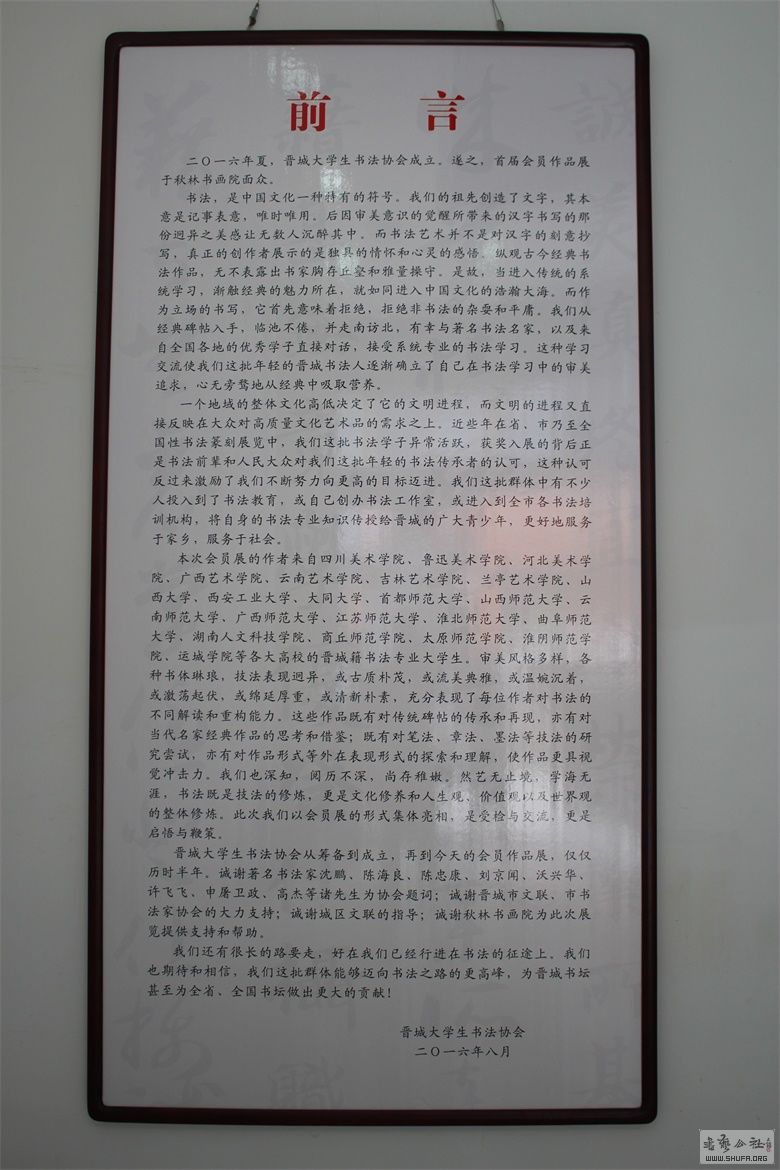 前 言
二〇一六年夏，晋城大学生书法协会成立。遂之，首届会员作品展
于秋林书画院面众。
书法，是中国文化一种特有的符号。我们的祖先创造了文字，其本
意是记事表意，唯时唯用。后因审美意识的觉醒所带来的汉字书写的那
份迥异之美感让无数人沉醉其中。而书法艺术并不是对汉字的刻意抄
写，真正的创作者展示的是独具的情怀和心灵的感悟。纵观古今经典书
法作品，无不表露出书家胸存丘壑和雅量操守。是故，当进入传统的系
统学习，渐触经典的魅力所在，就如同进入中国文化的浩瀚大海。而作
为立场的书写，它首先意味着拒绝，拒绝非书法的杂耍和平庸。我们从
经典碑帖入手，临池不倦，并走南访北，有幸与著名书法名家，以及来
自全国各地的优秀学子直接对话，接受系统专业的书法学习。这种学习
交流使我们这批年轻的晋城书法人逐渐确立了自己在书法学习中的审美
追求，心无旁骛地从经典中吸取营养。
一个地域的整体文化高低决定了它的文明进程，而文明的进程又直
接反映在大众对高质量文化艺术品的需求之上。近些年在省、市乃至全
国性书法篆刻展览中，我们这批书法学子异常活跃，获奖入展的背后正
是书法前辈和人民大众对我们这批年轻的书法传承者的认可，这种认可
反过来激励了我们不断努力向更高的目标迈进。我们这批群体中有不少
人投入到了书法教育，或自己创办书法工作室，或进入到全市各书法培
训机构，将自身的书法专业知识传授给晋城的广大青少年，更好地服务
于家乡，服务于社会。
本次会员展的作者来自四川美术学院、鲁迅美术学院、河北美术学
院、广西艺术学院、云南艺术学院、吉林艺术学院、兰亭艺术学院、山
西大学、西安工业大学、大同大学、首都师范大学、山西师范大学、云
南师范大学、广西师范大学、江苏师范大学、淮北师范大学、曲阜师范
大学、湖南人文科技学院、商丘师范学院、太原师范学院、淮阴师范学
院、运城学院等各大高校的晋城籍书法专业大学生。审美风格多样，各
种书体琳琅，技法表现迥异，或古质朴茂，或流美典雅，或温婉沉着，
或激荡起伏，或绵延厚重，或清新朴素，充分表现了每位作者对书法的
不同解读和重构能力。这些作品既有对传统碑帖的传承和再现，亦有对
当代名家经典作品的思考和借鉴；既有对笔法、章法、墨法等技法的研
究尝试，亦有对作品形式等外在表现形式的探索和理解，使作品更具视
觉冲击力。我们也深知，阅历不深，尚存稚嫩。然艺无止境，学海无
涯，书法既是技法的修炼，更是文化修养和人生观、价值观以及世界观
的整体修炼。此次我们以会员展的形式集体亮相，是受检与交流，更是
启悟与鞭策。
晋城大学生书法协会从筹备到成立，再到今天的会员作品展，仅仅
历时半年。诚谢著名书法家沈鹏、陈海良、陈忠康、刘京闻、沃兴华、
许飞飞、申屠卫政、高杰等诸先生为协会题词；诚谢晋城市文联、市书
法家协会的大力支持；诚谢城区文联的指导；诚谢秋林书画院为此次展
览提供支持和帮助。
我们还有很长的路要走，好在我们已经行进在书法的征途上。我们
也期待和相信，我们这批群体能够迈向书法之路的更高峰，为晋城书坛
甚至为全省、全国书坛做出更大的贡献！
晋城大学生书法协会
二〇一六年八月
WWW.SHUFA.ORG